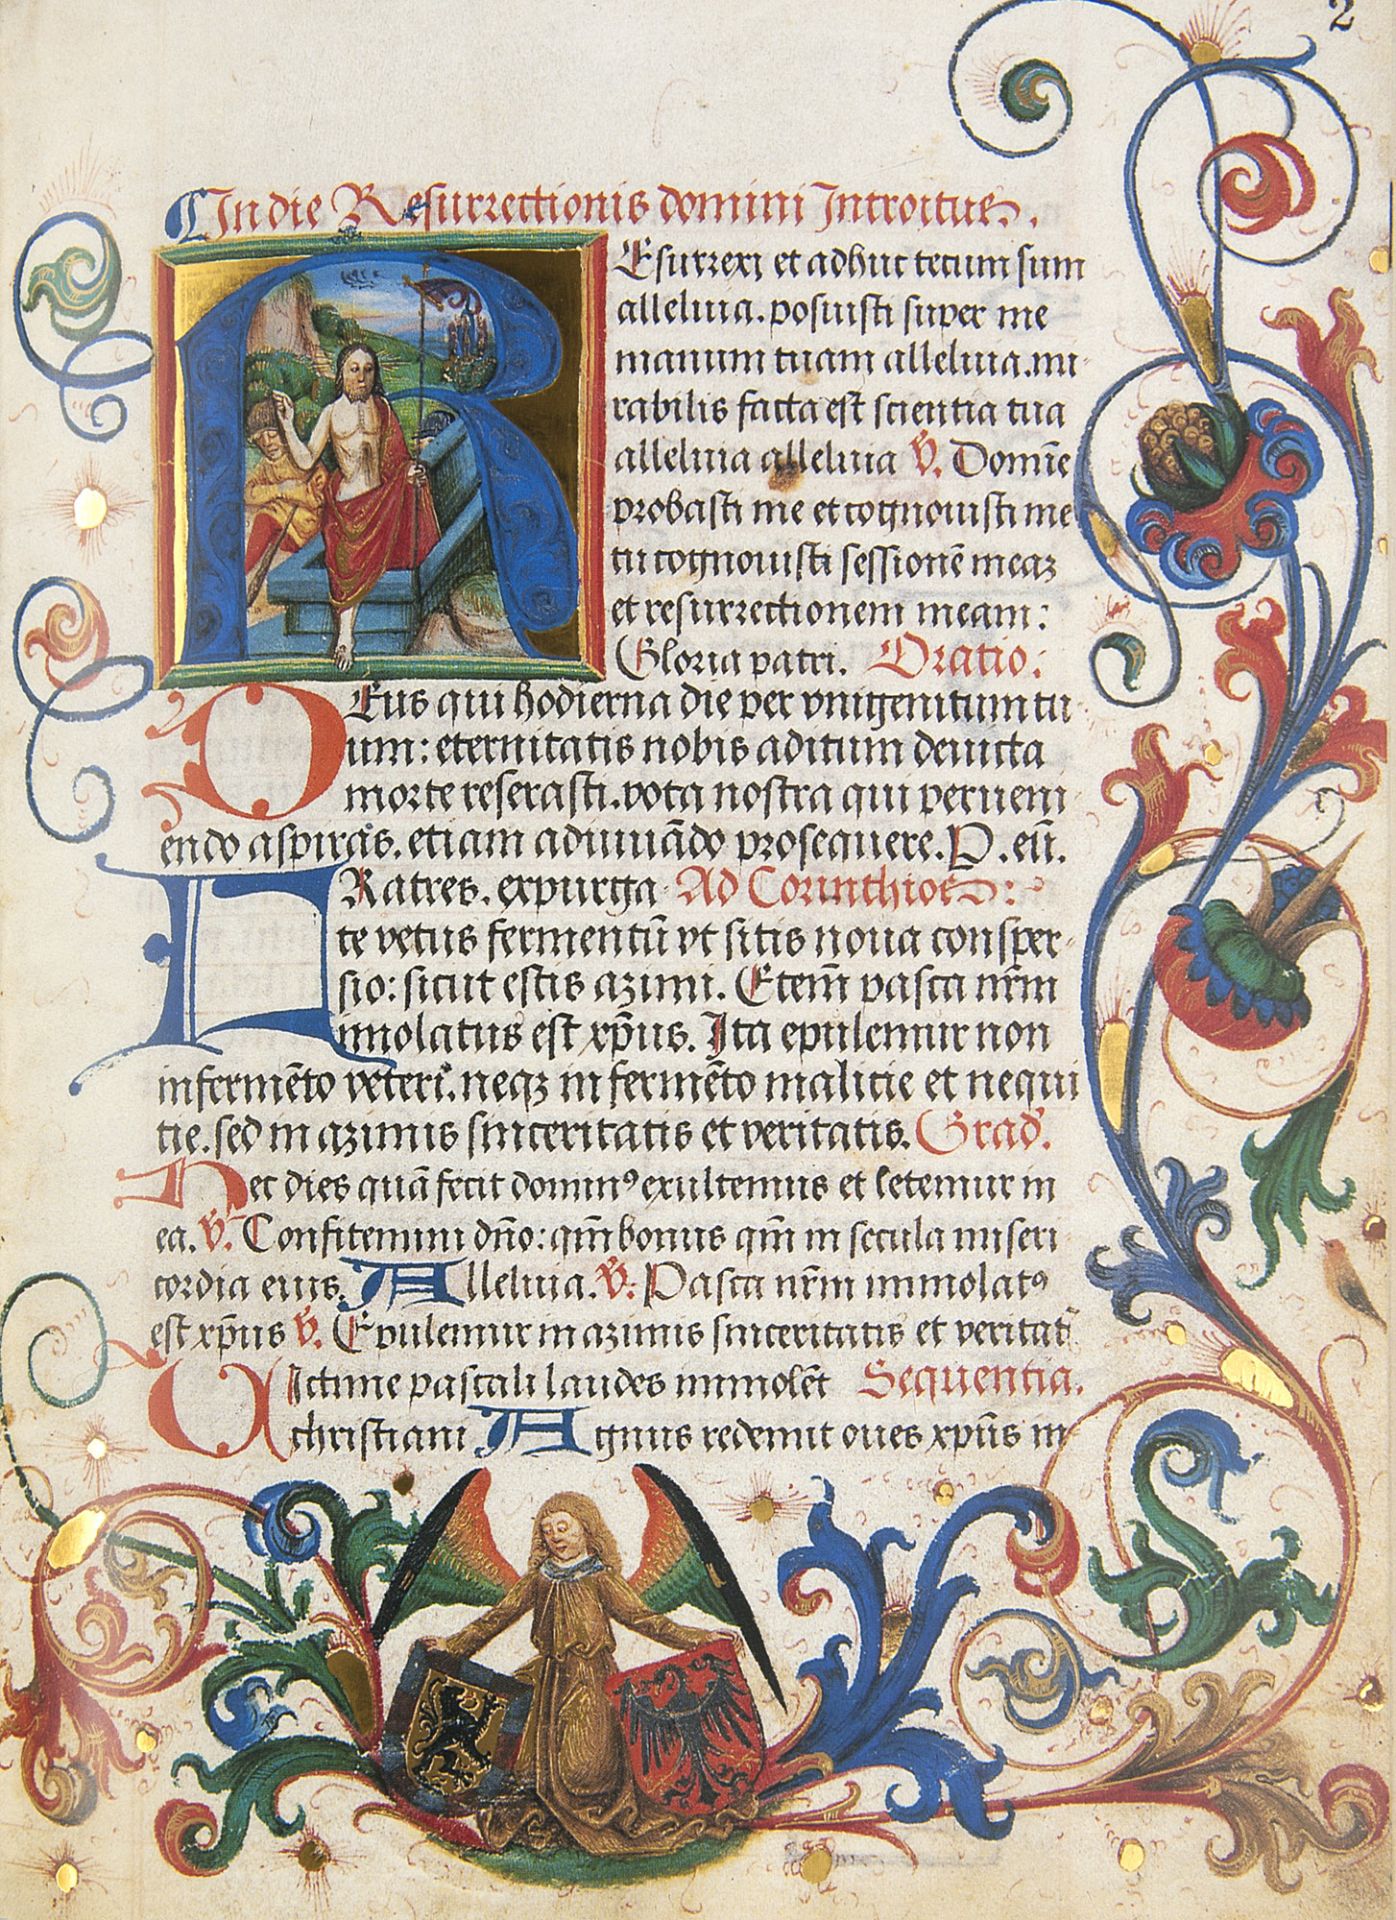 2
In die Resurrectionis domini Introitus.
Esurrexi et adhuc tecum sum
alleluia. posuisti super me
manum tuam alleluia. mi
rabilis facta est scientia tua
alleluia alleluia V. Domīe
probasti me et cognouisti me
tu cognouisti sessionē meaꝫ
et resurrectionem meam:
Gloria patri. Oratio:
DEus qui hodierna die per vnigenitum tu
um: eternitatis nobis aditum deuicta
morte reserasti. vota nostra qui perueni
endo aspiras. etiam adiuuādo prosequere. P. eū.
FRatres. expurga Ad Corinthios:
te vetus fermentū vt sitis noua consper
sio: sicut estis azimi. Etem̄ pasca nr̄m
immolatus est xp̄us. Ita epulemur non
in fermēto veteri. neqꝫ in fermēto malicie et nequi
tie. sed in azimis sinceritatis et veritatis. Grad̛.
Hec dies quā fecit dominꝰ exultemus et letemur in
ea. V. Confitemini dn̄o: qm̄ bonus qm̄ in secula miseri
cordia eius. Alleluia. V. Pasca nr̄m immolatꝰ
est xp̄us V. Epulemur in azimis sinceritatis et veritat̄
VIctime pascali laudes immolēt Sequentia.
christiani Agnus redemit oues xp̄us in